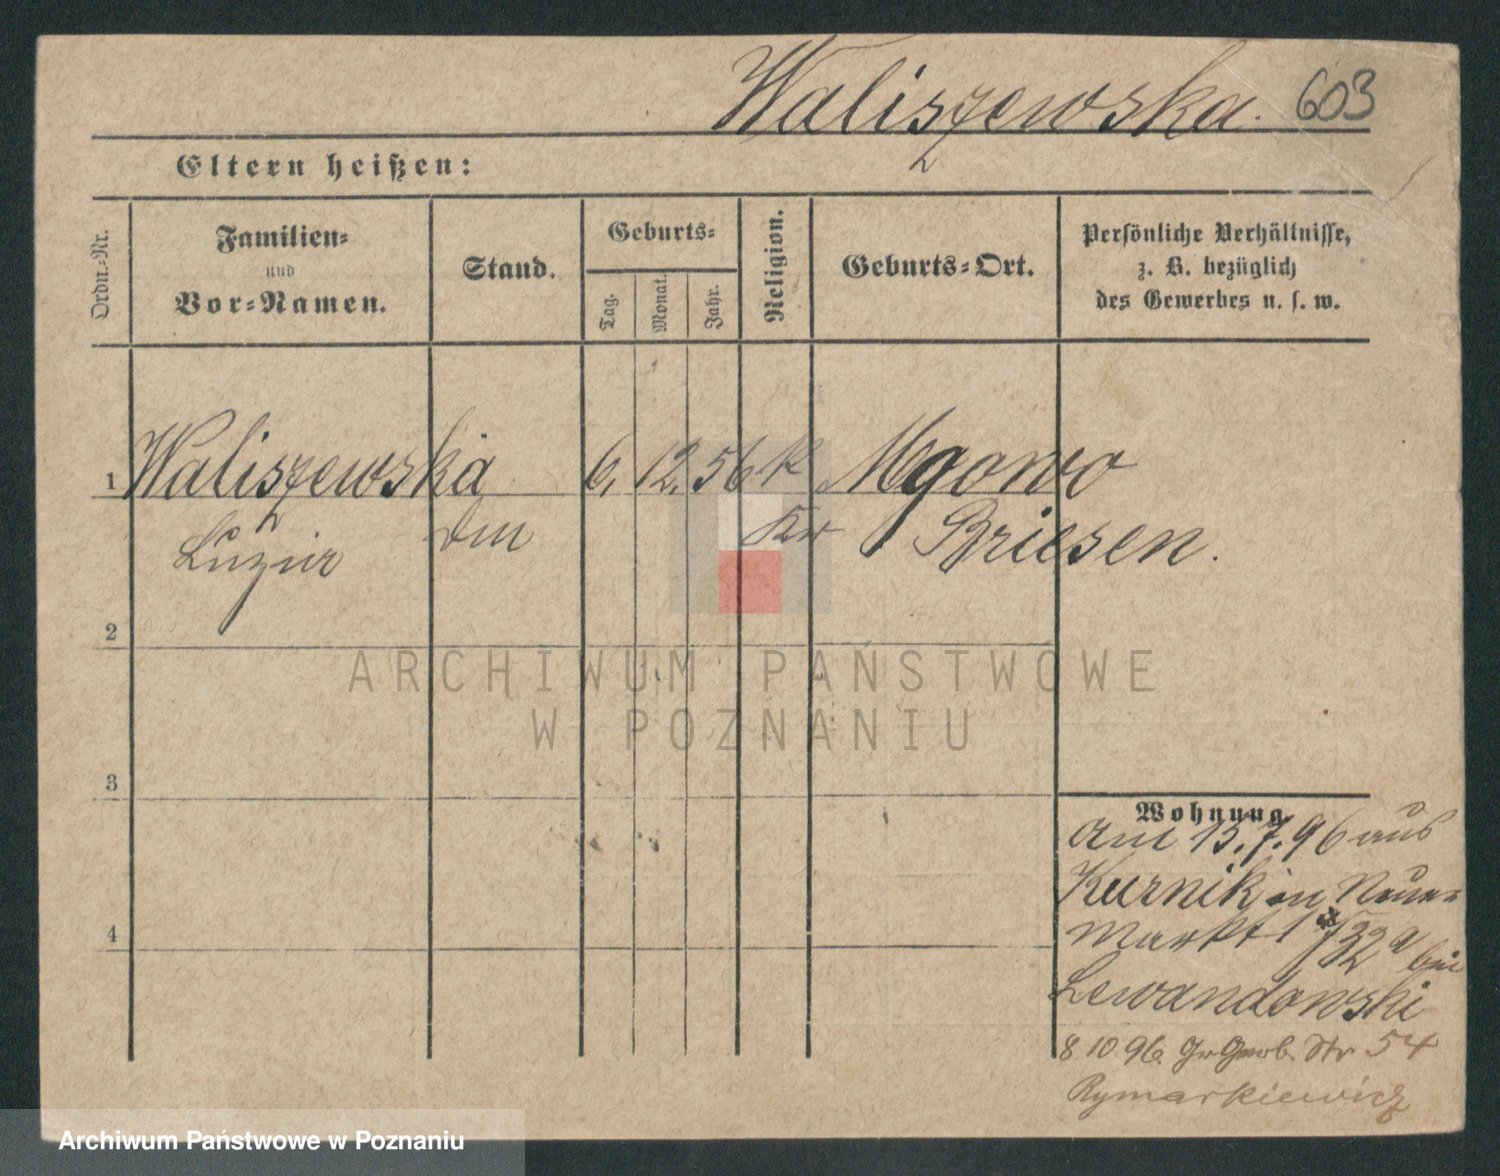 Waliszewska. 603
Eltern heißen:
Ordn.-Nr.
Familien-
und
Vor-Namen.
Stand.
Geburts-
Tag.
Monat.
Jahr.
Religion.
Geburts-Ort.
Persönliche Verhältnisse,
z. B. bezüglich
des Gewerbes u. s. w.
1 Waliszewska 6. 12. 56 K Mgowo
Kr Briesen.
2
3
4
ARCHIWUM PAŃSTWOWE
W POZNANIU
Wohnung
Am 13.7.96 aus
Kurnik in Neuer
Markt 1 32a bei
Lewandowski
8 10 96. Gr Gerb. Str 54
Rymarkiewicz
Archiwum Państwowe w Poznaniu